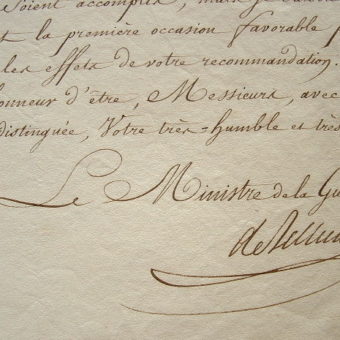 soient accomplis, mais je
st la première occasion favorable p
les effets de votre recommandation.
onneur d'être, Messieurs, avec
distinguée, Votre très=humble et très
Le Ministre de la Gu